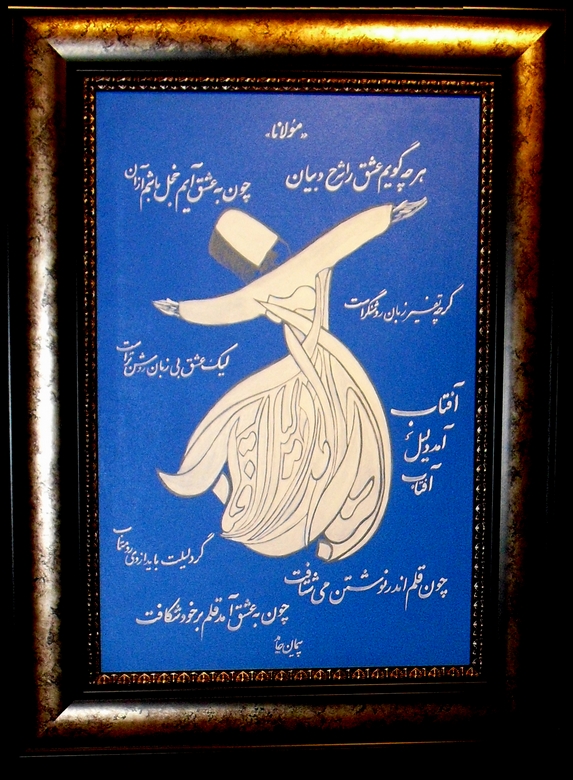 مولانا
هر چه گویم عشق را شرح و بیان
چون به عشق آیم خجل باشم از آن
گر چه تفسیر زبان روشنگر است
لیک عشق بی زبان روشن تر است
آفتاب
آمد دلیل
آفتاب
گر دلیلت باید از وی رو متاب
چون قلم اندر نوشتن می شتافت
چون به عشق آمد قلم بر خود شکافت